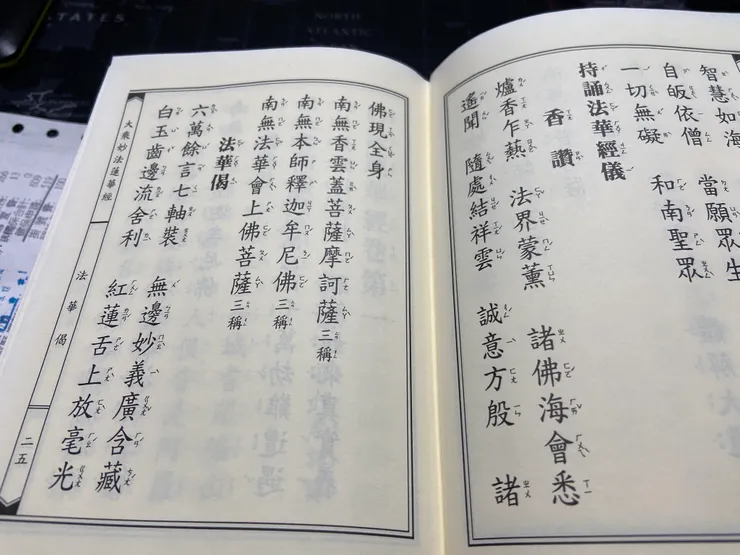 智慧如海
自皈依僧　當願眾生
一切無礙　和南聖眾
持誦法華經儀
香讚
爐香乍爇　法界蒙薰　諸佛海會悉
遙聞　隨處結祥雲　誠意方殷　諸
佛現全身
南無香雲蓋菩薩摩訶薩三稱
南無本師釋迦牟尼佛三稱
南無法華會上佛菩薩三稱
法華偈
六萬餘言七軸裝　無邊妙義廣含藏
白玉齒邊流舍利　紅蓮舌上放毫光
大乘妙法蓮華經
法華偈
二五
STATES
NORTH
ATLANTIC